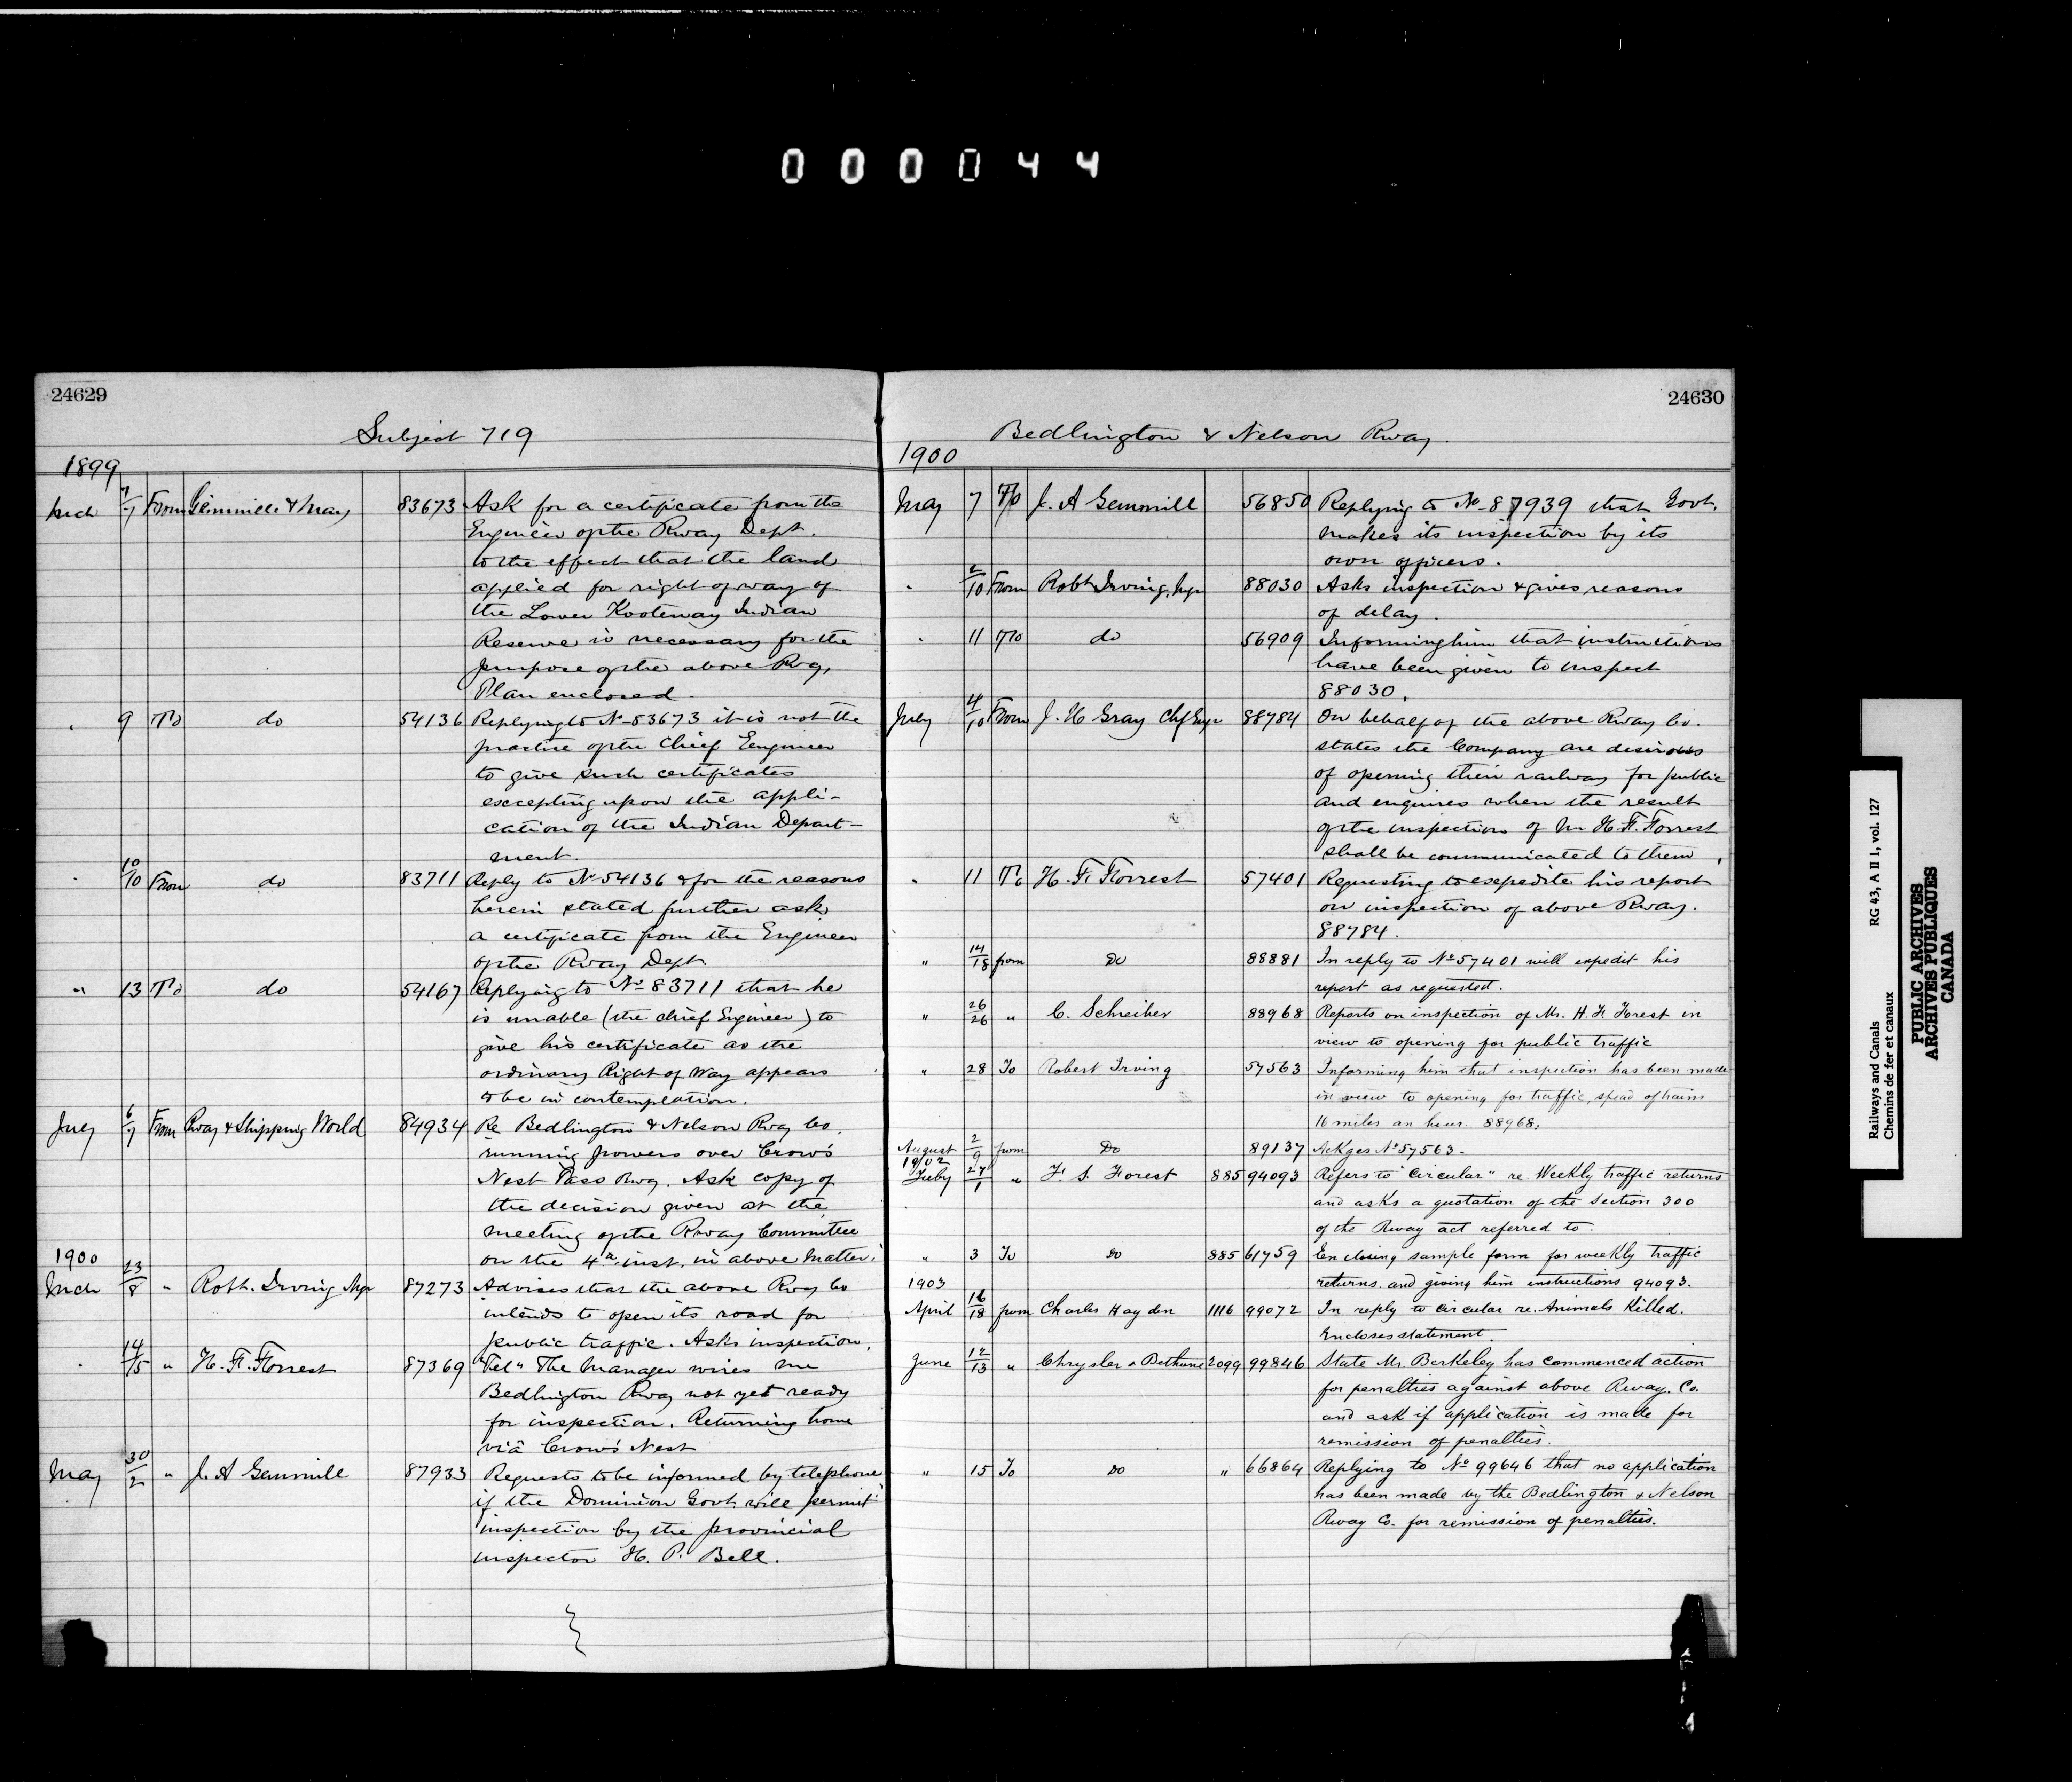 000044
24629
Subject 719
1899
Mch 7/7 From Gemmill & May 83673 Ask for a certificate from the
Engineer of the Rway Dept.
to the effect that the land
applied for right of way of
the Lower Kootenay Indian
Reserve is necessary for the
purpose of the above Rwy,
Plan enclosed.
" 9 To do 54136 Replying to No 83673 it is not the
practice of the Chief Engineer
to give such certificates
excepting upon the appli-
cation of the Indian Depart-
ment.
" 10/10 From do 83711 Reply to No 54136 & for the reasons
herein stated further ask
a certificate from the Engineer
of the Rway Dept.
" 13 To do 54167 Replying to No 83711 that he
is unable (the chief Engineer) to
give his certificate as the
ordinary Right of Way appears
to be in contemplation.
July 6/7 From Rway & Shipping World 84934 Re Bedlington & Nelson Rway Co.
running powers over Crow's
Nest Pass Rway. Ask copy of
the decision given at the
meeting of the Rway Committee
on the 4th inst. in above matter.
1900
Mch 23/8 " Robt. Irving Mgr 87273 Advises that the above Rway Co
intends to open its road for
public traffic. Asks inspection.
" 14/15 " H. F. Forrest 87369 "Tel" The Manager wires me
Bedlington Rway not yet ready
for inspection. Returning home
viâ Crow's Nest
May 30/2 " J. A Gemmill 87933 Requests to be informed by telephone
if the Dominion Govt. will permit
inspection by the provincial
inspector H. P. Bell.
24630
Bedlington & Nelson Rway.
1900
May 7 To J. A Gemmill 56850 Replying to No 87939 that Govt.
makes its inspection by its
own officers.
" 2/10 From Robt Irving, Mgr 88030 Asks inspection & gives reasons
of delay.
" 11 To do 56909 Informing him that instructions
have been given to inspect
88030.
July 4/10 From J. H Gray Chf Engr 88784 On behalf of the above Rway Co.
states the Company are desirous
of opening their railway for public
and enquires when the result
of the inspection of Mr H. F. Forrest
shall be communicated to them.
" 11 To H. F. Forrest 57401 Requesting to expedite his report
on inspection of above Rway.
88784.
" 14/18 from Do 88881 In reply to No 57401 will expedit his
report as requested.
" 26/26 " C. Schreiber 88968 Reports on inspection of Mr. H. F. Forest in
view to opening for public traffic
" 28 To Robert Irving 57563 Informing him that inspection has been made
in view to opening for traffic, spead of trains
16 miles an hour. 88968.
August 2/9 from Do 89137 Ackges No 57563.
1902
Feby 27/1 " F. S. Forest 885 94093 Refers to "Circular" re Weekly traffic returns
and asks a quotation of the Section 300
of the Rway act referred to.
" 3 To Do 885 61759 Enclosing sample form for weekly traffic
returns. and giving him instructions 94093.
1903
April 16/18 from Charles Hayden 1116 99072 In reply to Circular re. Animals Killed.
Encloses statement.
June 12/13 " Chrysler & Bethune 2099 99846 State Mr. Berkeley has commenced action
for penalties against above Rway. Co.
and ask if application is made for
remission of penalties.
" 15 To Do " 66864 Replying to No 99646 that no application
has been made by the Bedlington & Nelson
Rway Co. for remission of penalties.
Railways and Canals RG 43, A II 1, vol. 127
Chemins de fer et canaux
PUBLIC ARCHIVES
ARCHIVES PUBLIQUES
CANADA